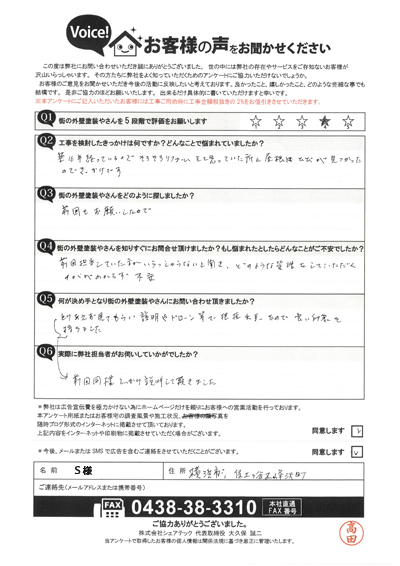 Voice!
お客様の声をお聞かせください
この度は弊社にお問い合わせいただき誠にありがとうございました。世の中には弊社の存在やサービスをご存知ないお客様が
沢山いらっしゃいます。その方たちに弊社をよく知っていただくためのアンケートにご協力いただけないでしょうか。
お客様のご意見をお聞かせいただき今後の活動に反映したいと考えております。良かったこと、嬉しかったこと、どのような些細な事でも
結構です。是非ご協力のほどお願いいたします。出来るだけ具体的に書いていただけますと幸いです。
※本アンケートにご記入いただいたお客様には工事ご用命時に工事金額税抜きの2%をお値引きさせていただきます。
Q1 街の外壁塗装やさんを5段階で評価をお願いします
1 2 3 4 5
Q2 工事を検討したきっかけは何ですか?どんなことで悩まれていましたか?
築 年経っているので そろそろリフォーム をと思っていた所
のでき
Q3 街の外壁塗装やさんをどのように探しましたか?
前回もお願いしたので
Q4 街の外壁塗装やさんを知りすぐにお問合せ頂けましたか?もし悩まれたとしたらどんなことがご不安でしたか?
前回担当していた方がいらっしゃらないと聞き、どのような管理をしていただく
のかがわからず 不安
Q5 何が決め手となり街の外壁塗装やさんにお問い合わせ頂きましたか?
見てもらい 説明やドローン等で 良い印象を
持ちました
Q6 実際に弊社担当者がお伺いしていかがでしたか?
前回同様しっかり説明して頂きました
※弊社は広告宣伝費を極力かけない為にホームページだけを頼りにお客様への営業活動を行っております。
本アンケート用紙またはお客様宅の調査風景や施工状況、お客様の顔写真を
随時ブログ形式のインターネットに掲載させて頂いております。
上記内容をインターネットや印刷物に掲載させていただく場合がございます。 同意します
※今後、メールまたはSMSで広告を含むご連絡をさせていただくことがございます。 同意します
名前 S様 住所 横浜市 保土ヶ谷区峰沢町
ご連絡先(メールアドレスまたは携帯番号)
FAX 0438-38-3310 本社直通 FAX番号
ご協力ありがとうございました。
株式会社シェアテック 代表取締役 大久保 誠二
当アンケートで取得したお客様の個人情報は関係法規に基づき厳正に管理いたします。
高田